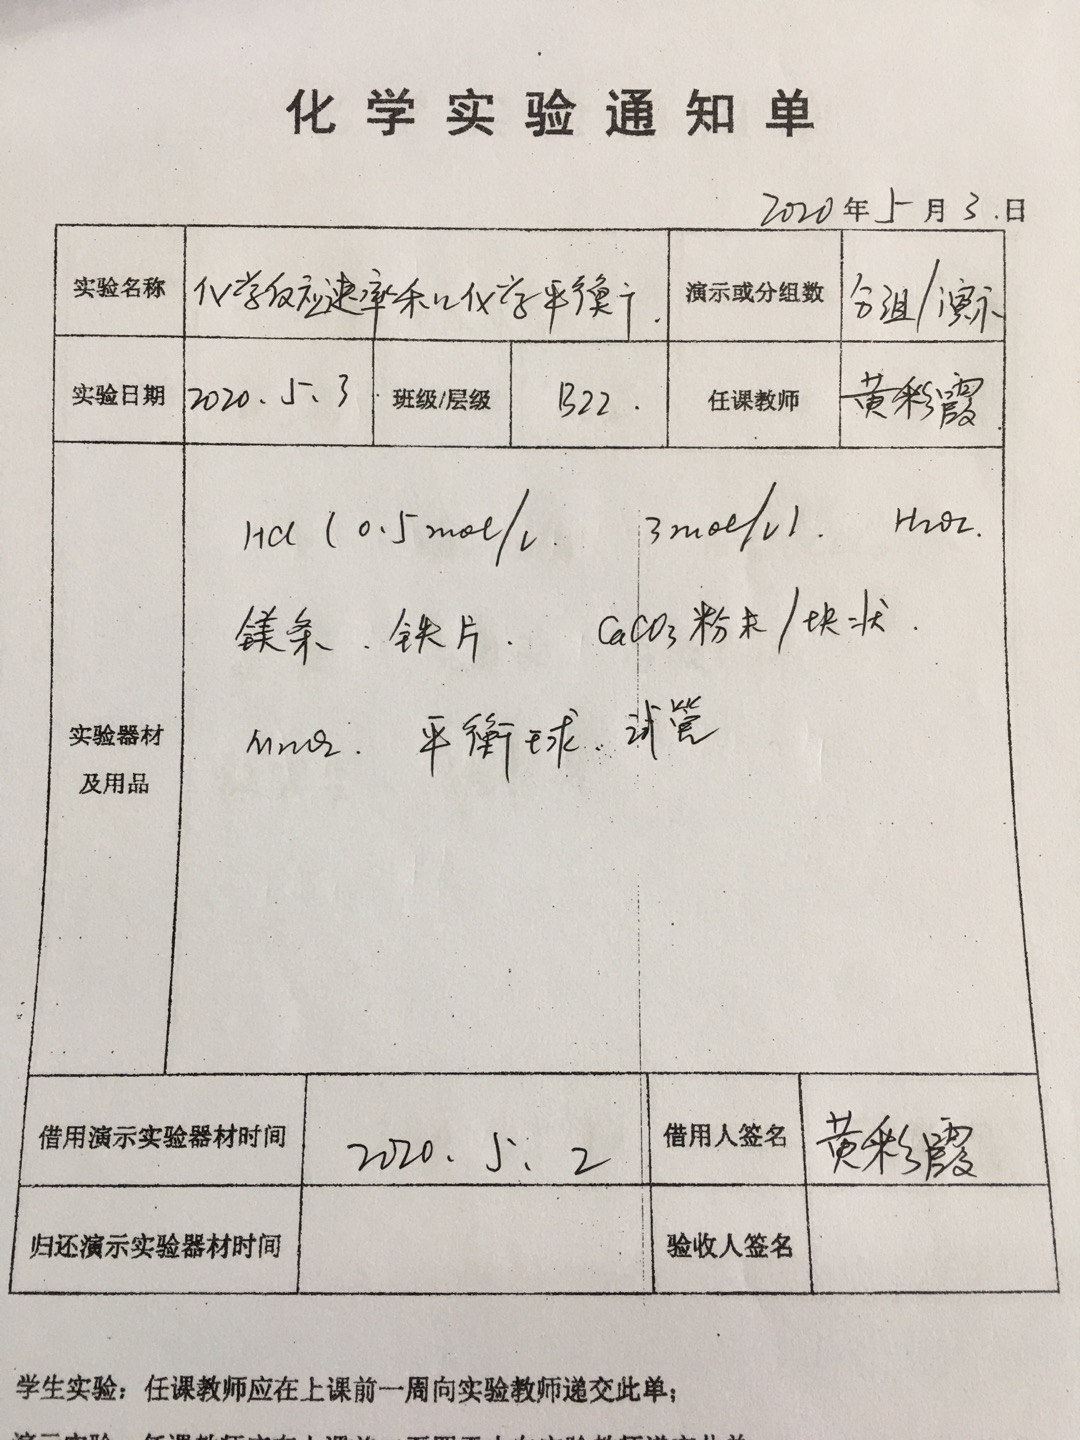 化学实验通知单
2020年5月3日
实验名称 化学反应速率和化学平衡 演示或分组数 分组/演示
实验日期 2020.5.3 班级/层级 B22. 任课教师 黄彩霞
HCl (0.5mol/L 3mol/L). H2O2.
镁条、铁片. CaCO3粉末/块状.
实验器材
及用品
MnO2. 平衡球、试管
借用演示实验器材时间 2020.5.2 借用人签名 黄彩霞
归还演示实验器材时间 验收人签名
学生实验：任课教师应在上课前一周向实验教师递交此单；